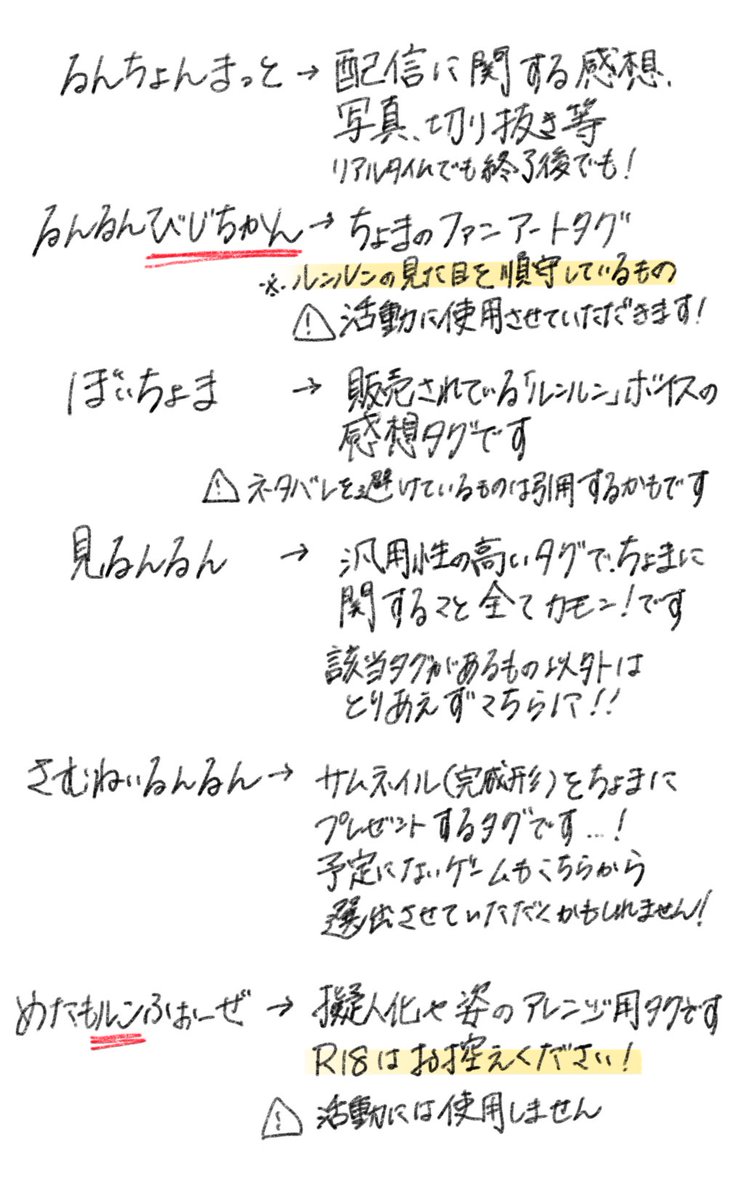 るんちょんまっと→配信に関する感想、
写真、切り抜き等
リアルタイムでも終了後でも!
るんるんびじちかん→ちょまのファンアートタグ
※ルンルンの見た目を順守しているもの
⚠活動に使用させていただきます!
ぼいちょま→販売されている「ルンルン」ボイスの
感想タグです
⚠ネタバレを避けているものは引用するかもです
見るんるん→汎用性の高いタグで、ちょまに
関すること全てカモン!です
該当タグがあるもの以外は
とりあえずこちらに!!
さむねいるんるん→サムネイル(完成形)をちょまに
プレゼントするタグです…!
予定にないゲームもこちらから
選出させていただくかもしれません!
めたもルンふぉーぜ→擬人化や姿のアレンジ用タグです
R18はお控えください!
⚠活動には使用しません